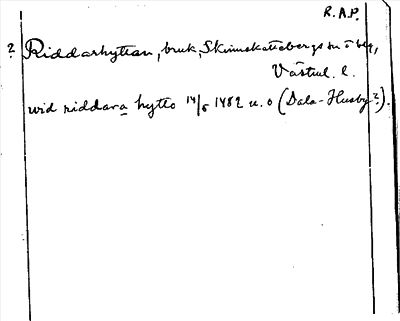 R.A.P.
? Riddarhyttan, bruk, Skinnskattebergs sn o bg,
Västml. l.
wid riddara hytto 14/5 1482 u. o (Dala-Husby?).